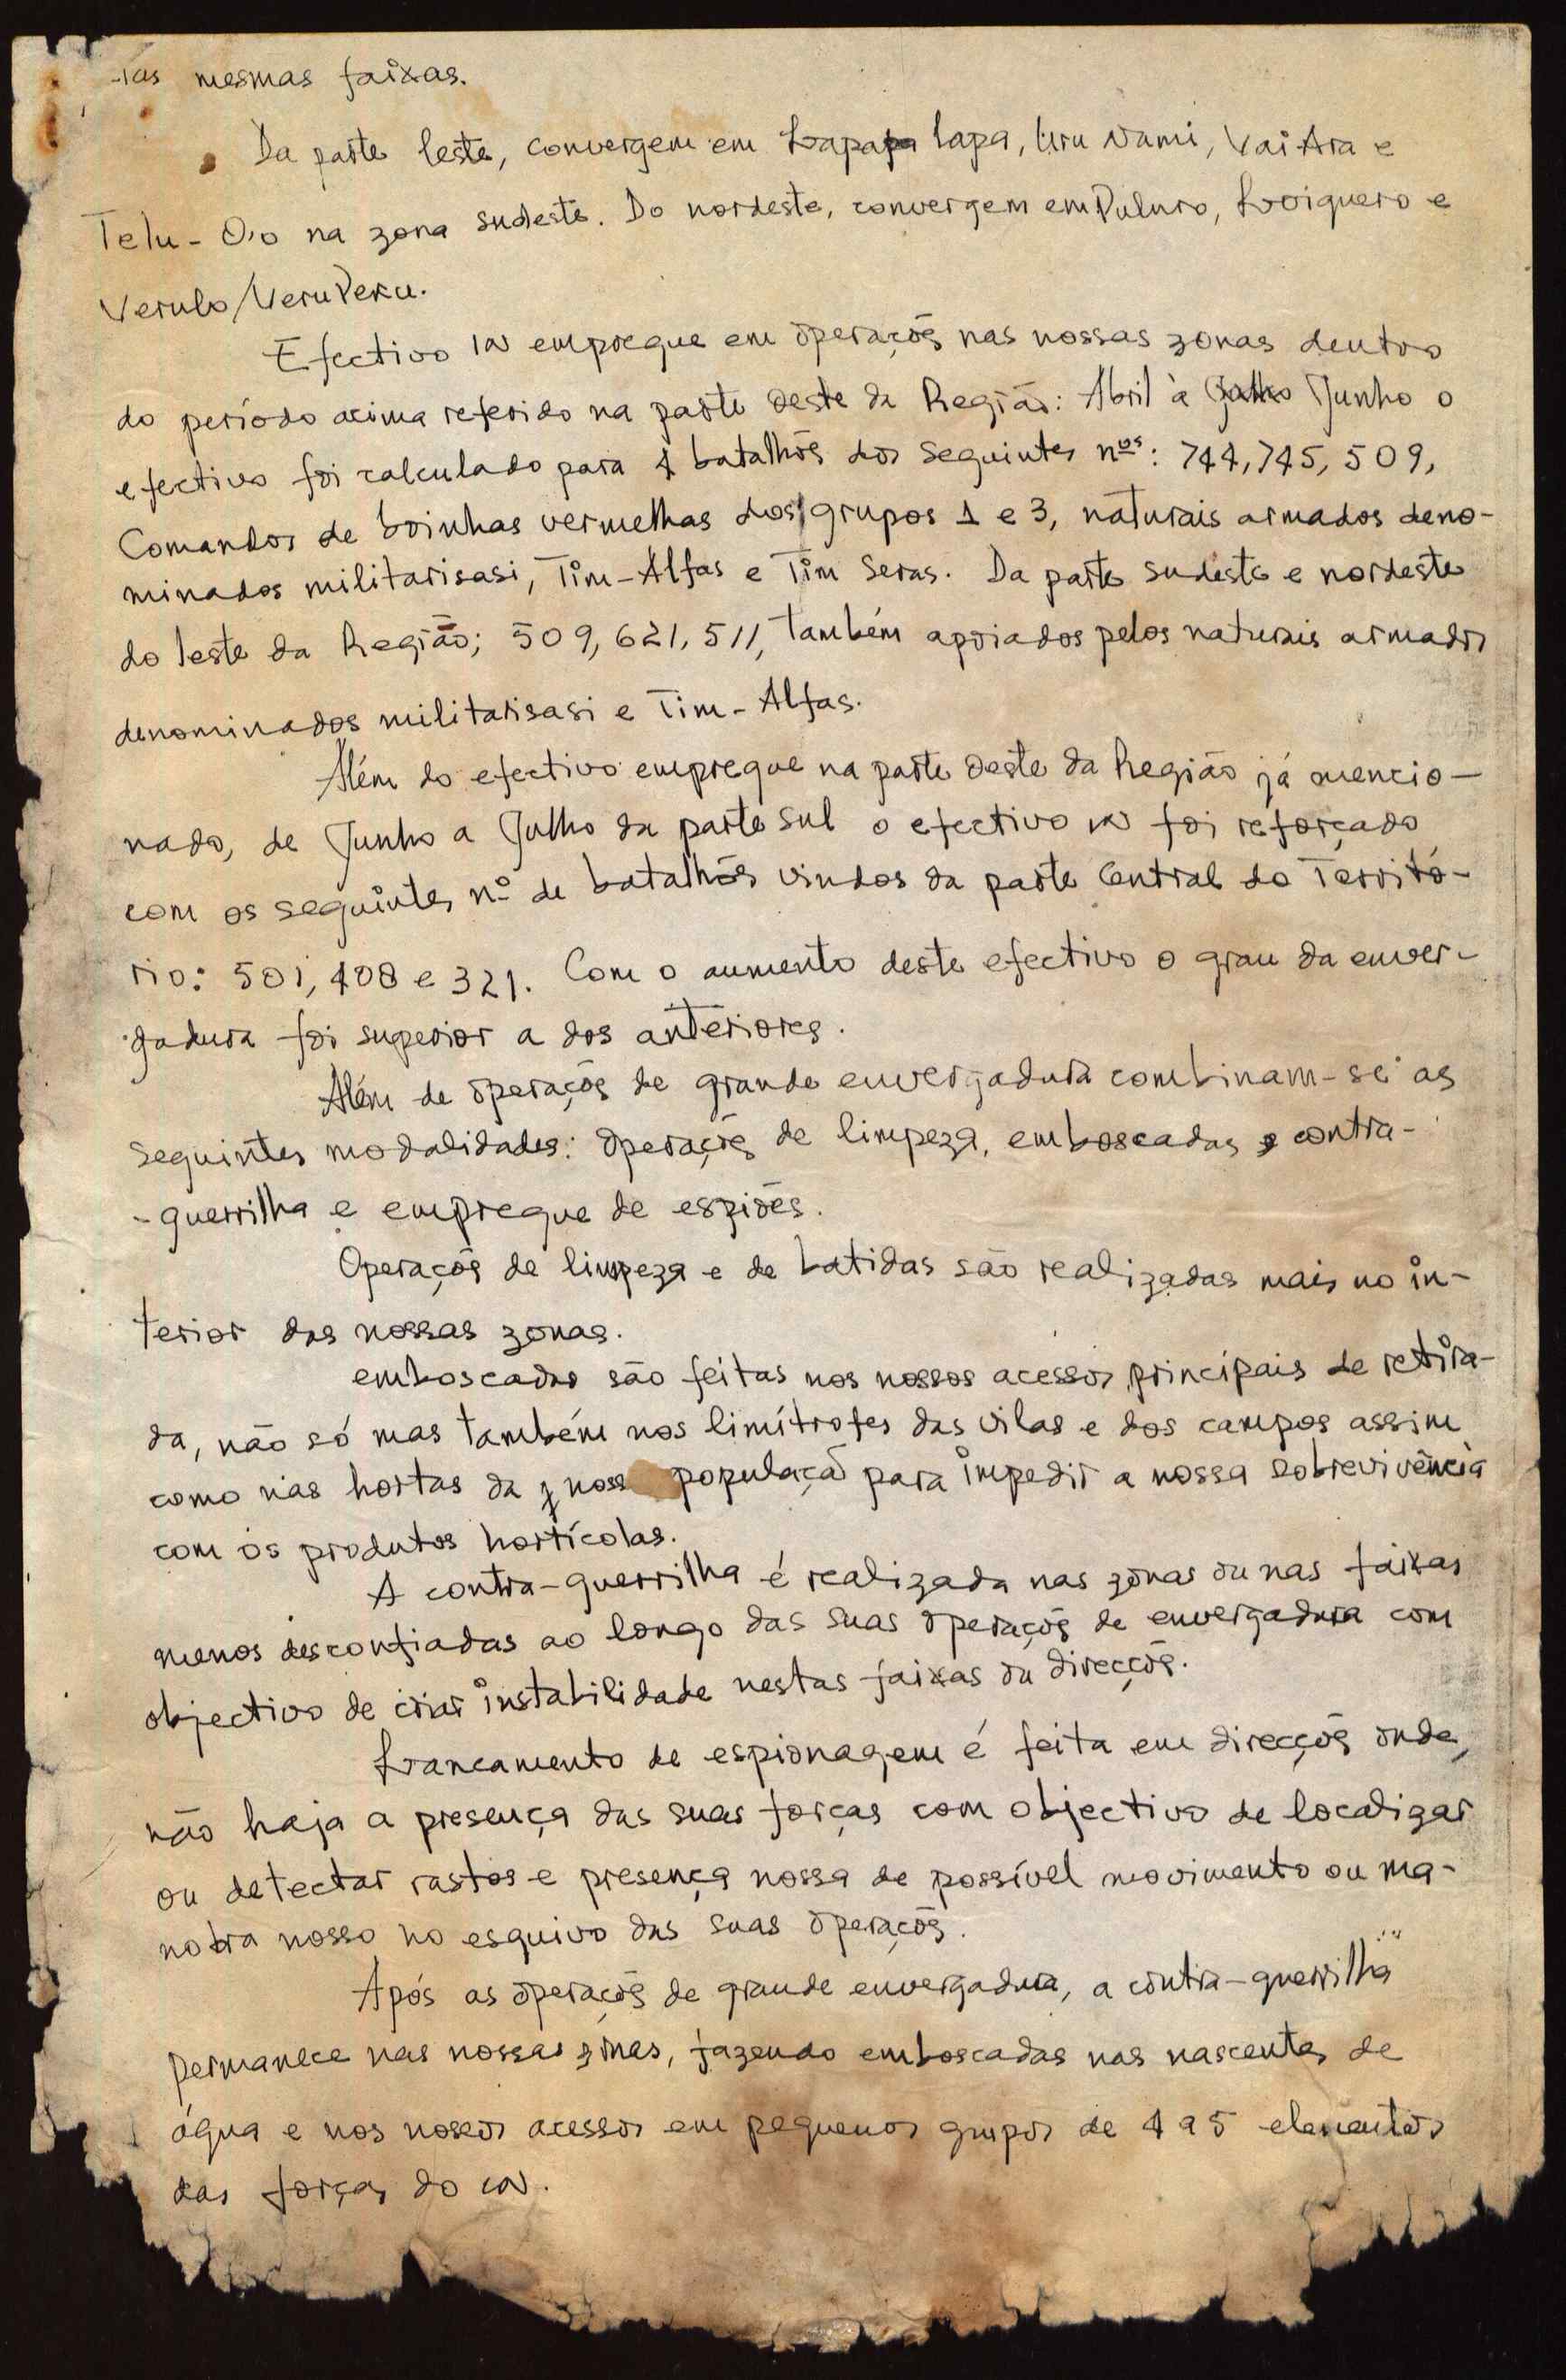 -tas mesmas faixas.
Da parte leste, convergem em Lapapa lapa, Uru Nami, Vai Ara e
Telu-Oro na zona sudeste. Do nordeste, convergem em Puluro, Loiquero e
Verulo/VeruPeru.
Efectivo in empregue em operaçõs nas nossas zonas dentro
do período acima referido na parte Oeste da Região: Abril à Junho o
efectivo foi calculado para 4 batalhõs dos seguintes nºs: 744, 745, 509,
Comandos de boinhas vermelhas dos grupos 1 e 3, naturais armados deno-
minados militarisasi, Tim-Alfas e Tim Seras. Da parte sudeste e nordeste
do leste da Região; 509, 621, 511, também apoiados pelos naturais armados
denominados militarisasi e Tim-Alfas.
Além do efectivo empregue na parte Oeste da Região já mencio-
nado, de Junho a Julho da parte sul o efectivo in foi reforçado
com os seguintes nº de batalhõs vindos da parte Central do Territó-
rio: 501, 408 e 321. Com o aumento deste efectivo o grau da enver-
gadura foi superior a dos anteriores.
Além de operaçõs de grande envergadura combinam-se as
seguintes modalidades: operaçõs de limpeza, emboscadas, contra-
-guerrilha e empregue de espiões.
Operaçõs de limpeza e de batidas são realizadas mais no in-
terior das nossas zonas.
emboscadas são feitas nos nossos acessos principais de retira-
da, não só mas também nos limítrofes das vilas e dos campos assim
como nas hortas da noss populaçã para impedir a nossa sobrevivência
com os produtos hortícolas.
A contra-guerrilha é realizada nas zonas ou nas faixas
menos desconfiadas ao longo das suas operaçõs de envergadura com
objectivo de criar instabilidade nestas faixas ou direcçõs.
Lancamento de espionagem é feita em direcçõs onde,
não haja a presença das suas forças com objectivo de localizar
ou detectar rastos e presença nossa de possível movimento ou ma-
nobra nosso no esquivo das suas operaçõs.
Após as operaçõs de grande envergadura, a contra-guerrilha
permanece nas nossas zonas, fazendo emboscadas nas nascentes de
água e nos nossos acessos em pequenos grupos de 4 a 5 elementos
das forças do in.